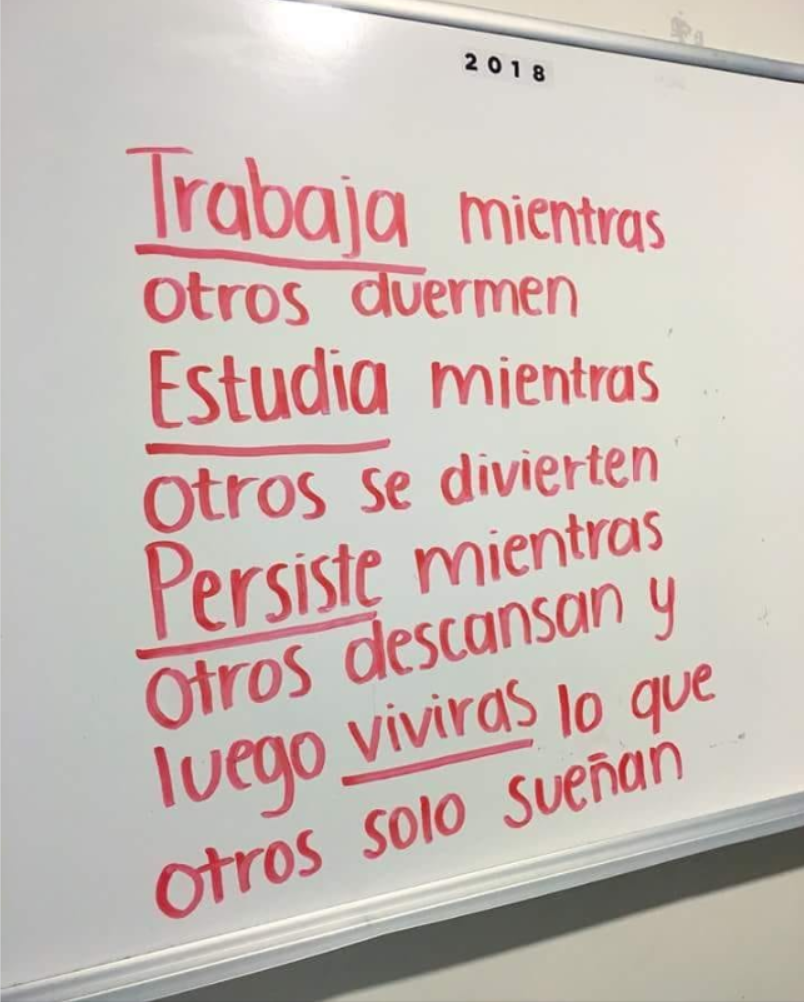 2018
Trabaja mientras
otros duermen
Estudia mientras
otros se divierten
Persiste mientras
otros descansan y
luego viviras lo que
otros solo sueñan